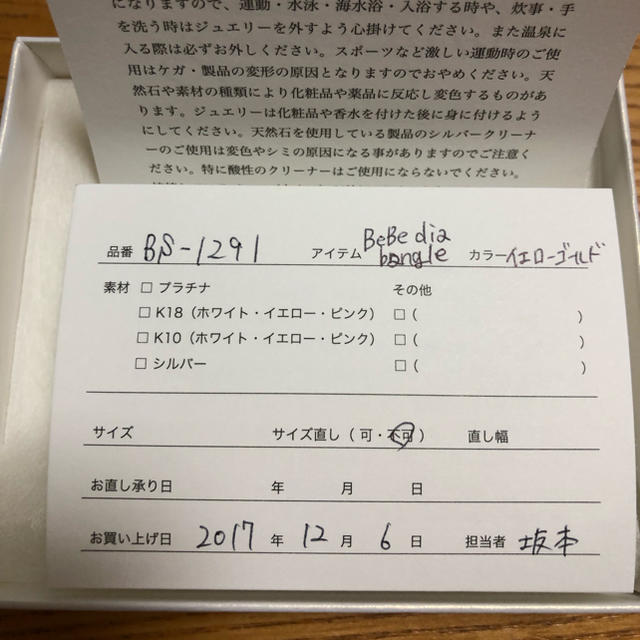 になりますので、運動・水泳・海水浴・入浴する時や、炊事・手
を洗う時はジュエリーを外すよう心掛けてください。また温泉に
入る際は必ずお外しください。スポーツなど激しい運動時のご使
用はケガ・製品の変形の原因となりますのでおやめください。天
然石や素材の種類により化粧品や薬品に反応し変色するものがあ
ります。ジュエリーは化粧品や香水を付けた後に身に付けるよう
にしてください。天然石を使用している製品のシルバークリーナ
ーのご使用は変色やシミの原因になる事がありますのでご注意く
ださい。特に酸性のクリーナーはご使用にならないでください。
品番 BS-1291 アイテム BeBe dia bangle カラー イエローゴールド
素材 □ プラチナ その他
□ K18（ホワイト・イエロー・ピンク） □ ( )
□ K10（ホワイト・イエロー・ピンク） □ ( )
□ シルバー □ ( )
サイズ サイズ直し（ 可・不可 ） 直し幅
お直し承り日 年 月 日
お買い上げ日 2017 年 12 月 6 日 担当者 坂本